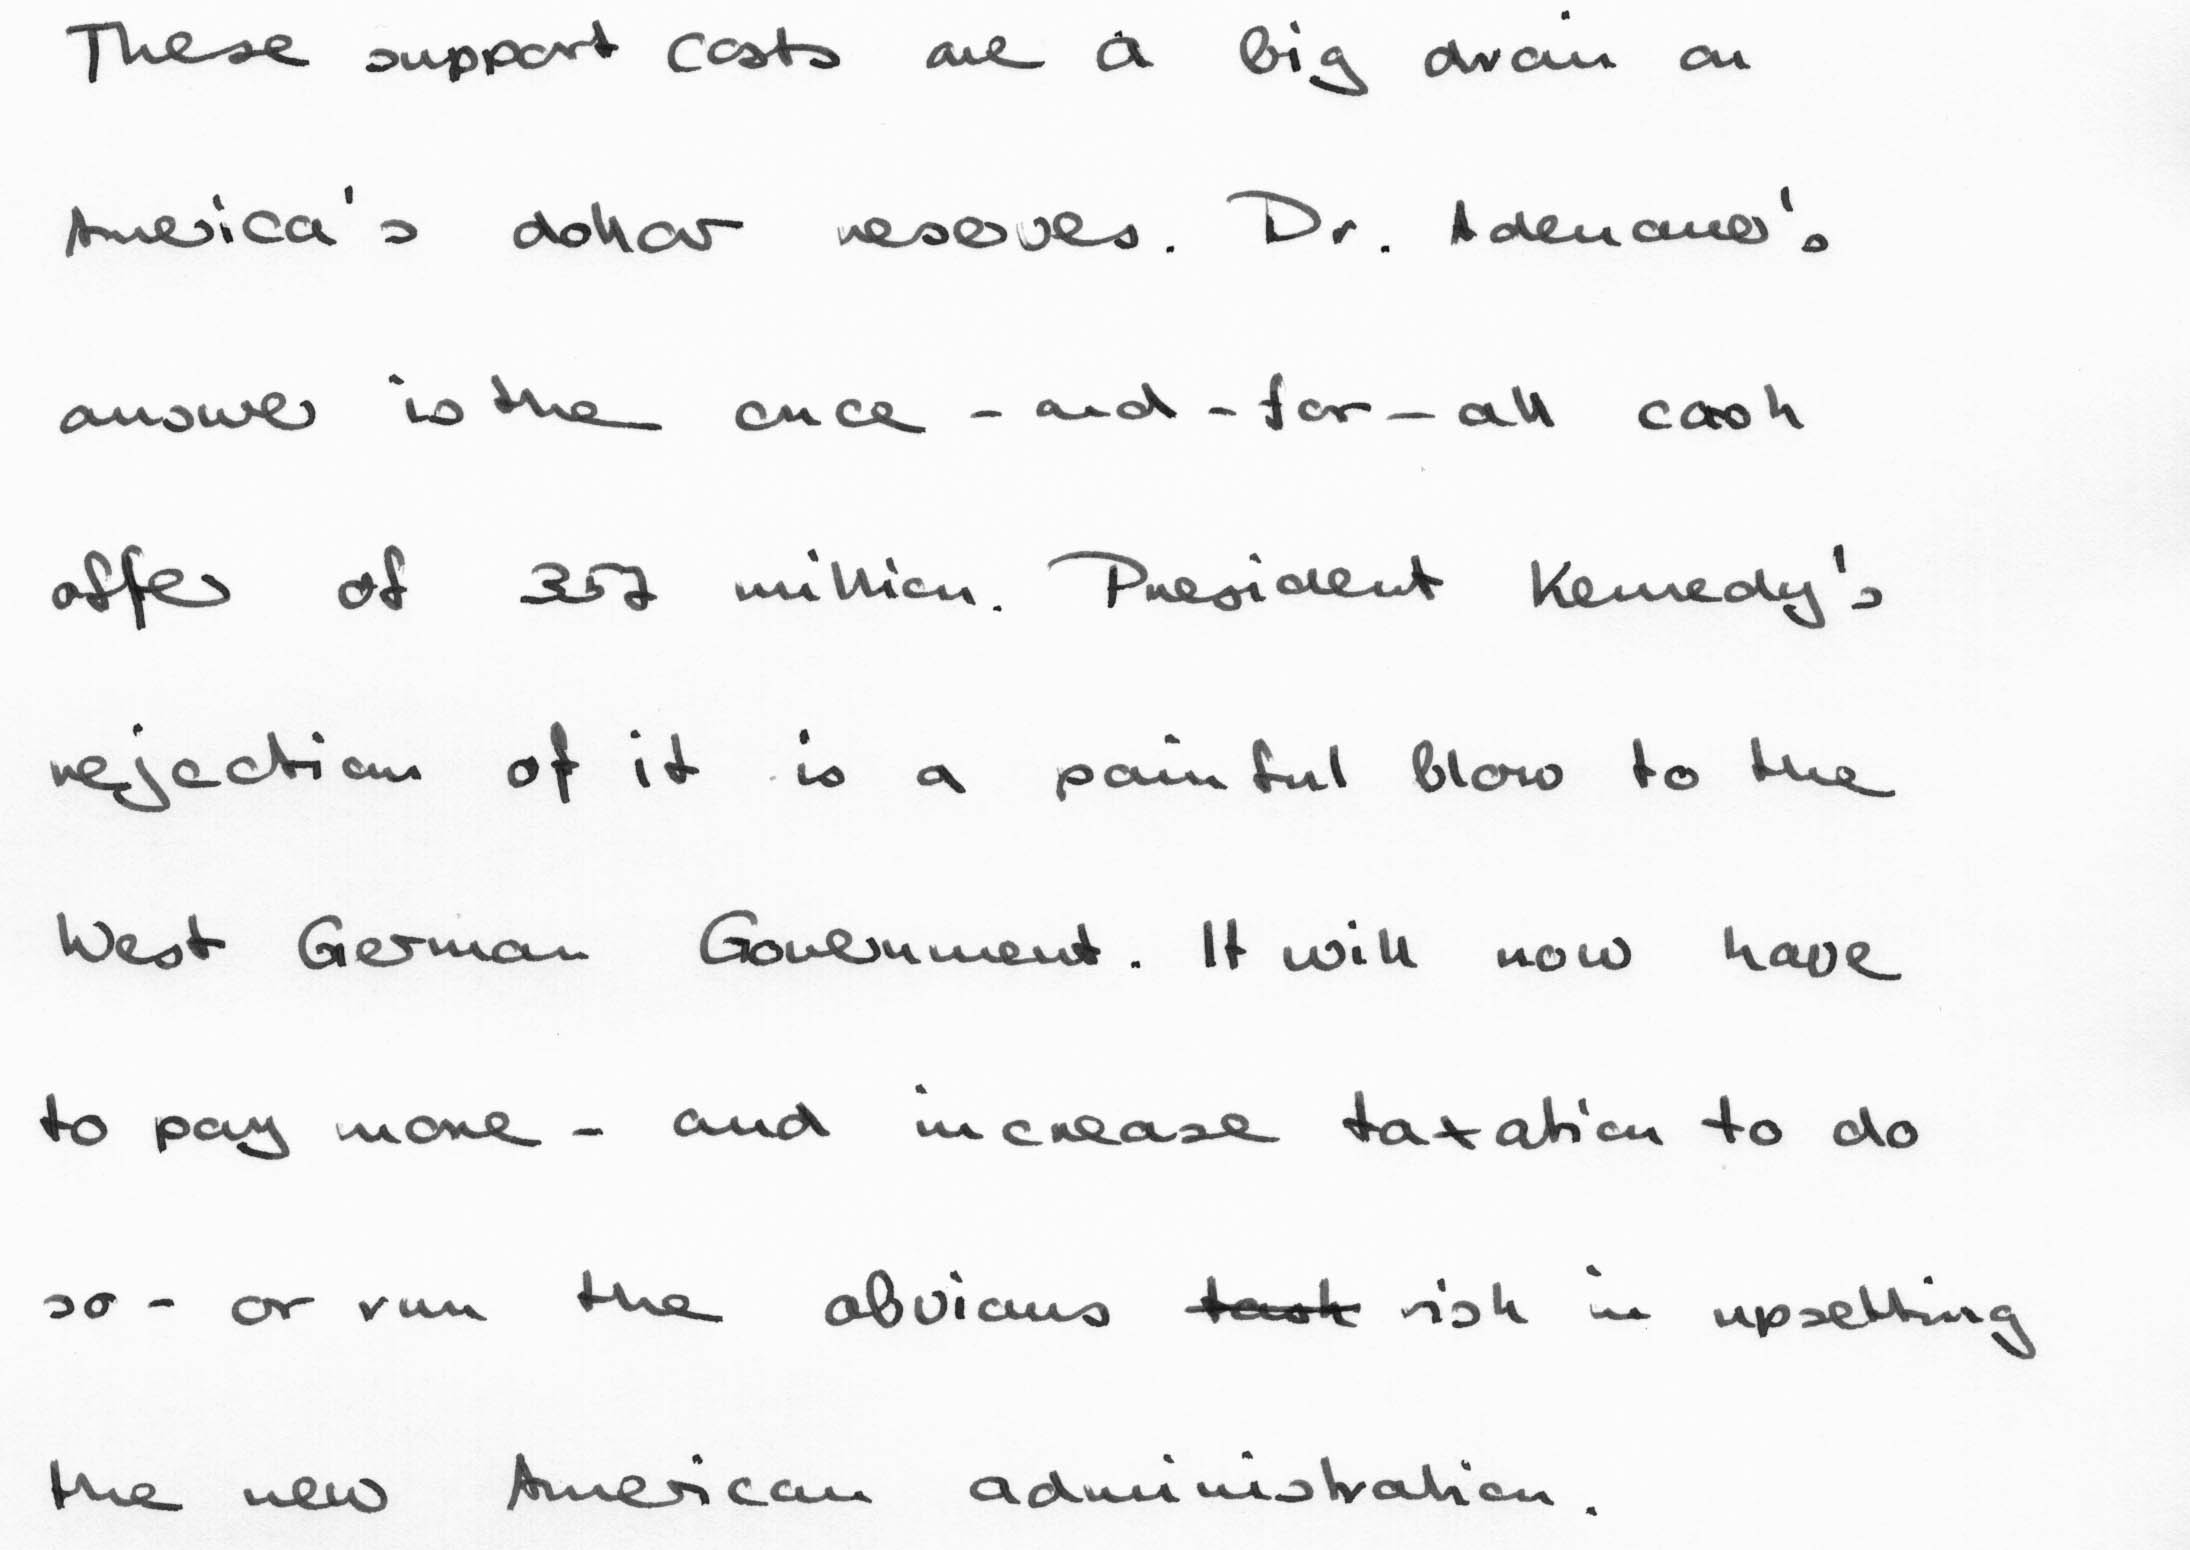 These support costs are a big drain on
America's dollar reserves. Dr. Adenauer's
answer is the once - and - for - all cash
offer of 357 million. President Kennedy's
rejection of it is a painful blow to the
West German Government. It will now have
to pay more - and increase taxation to do
so - or run the obvious task risk in upsetting
the new American administration.